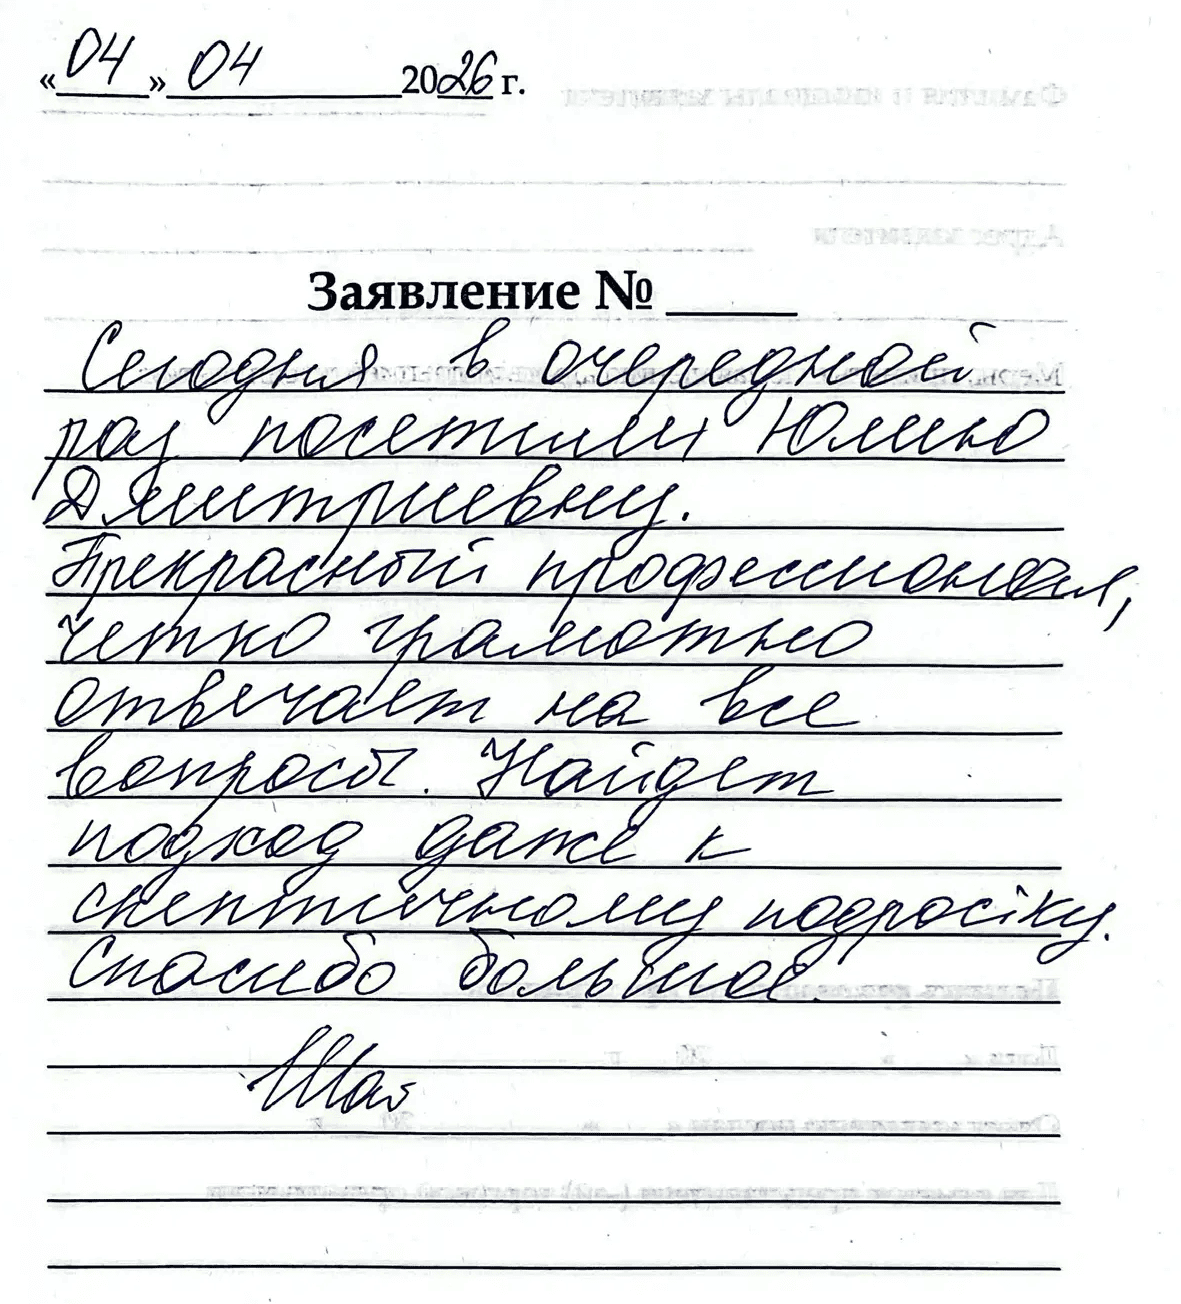 «04» 04 2026 г.
Заявление №
Сегодня в очередной
раз посетили Юлию
Дмитриевну.
Прекрасный профессионал,
четко грамотно
отвечает на все
вопросы. Найдет
подход даже к
скептичному подростку.
Спасибо большое.